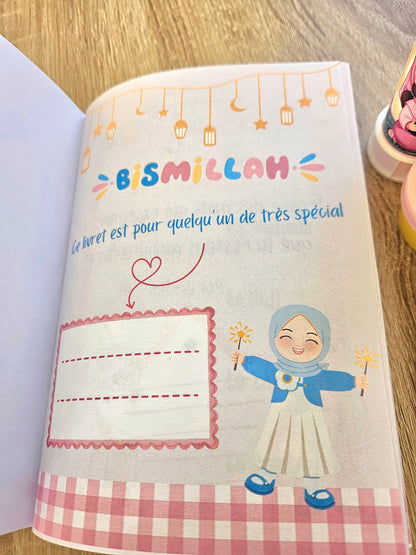 BISMILLAH
Ce livret est pour quelqu'un de très spécial